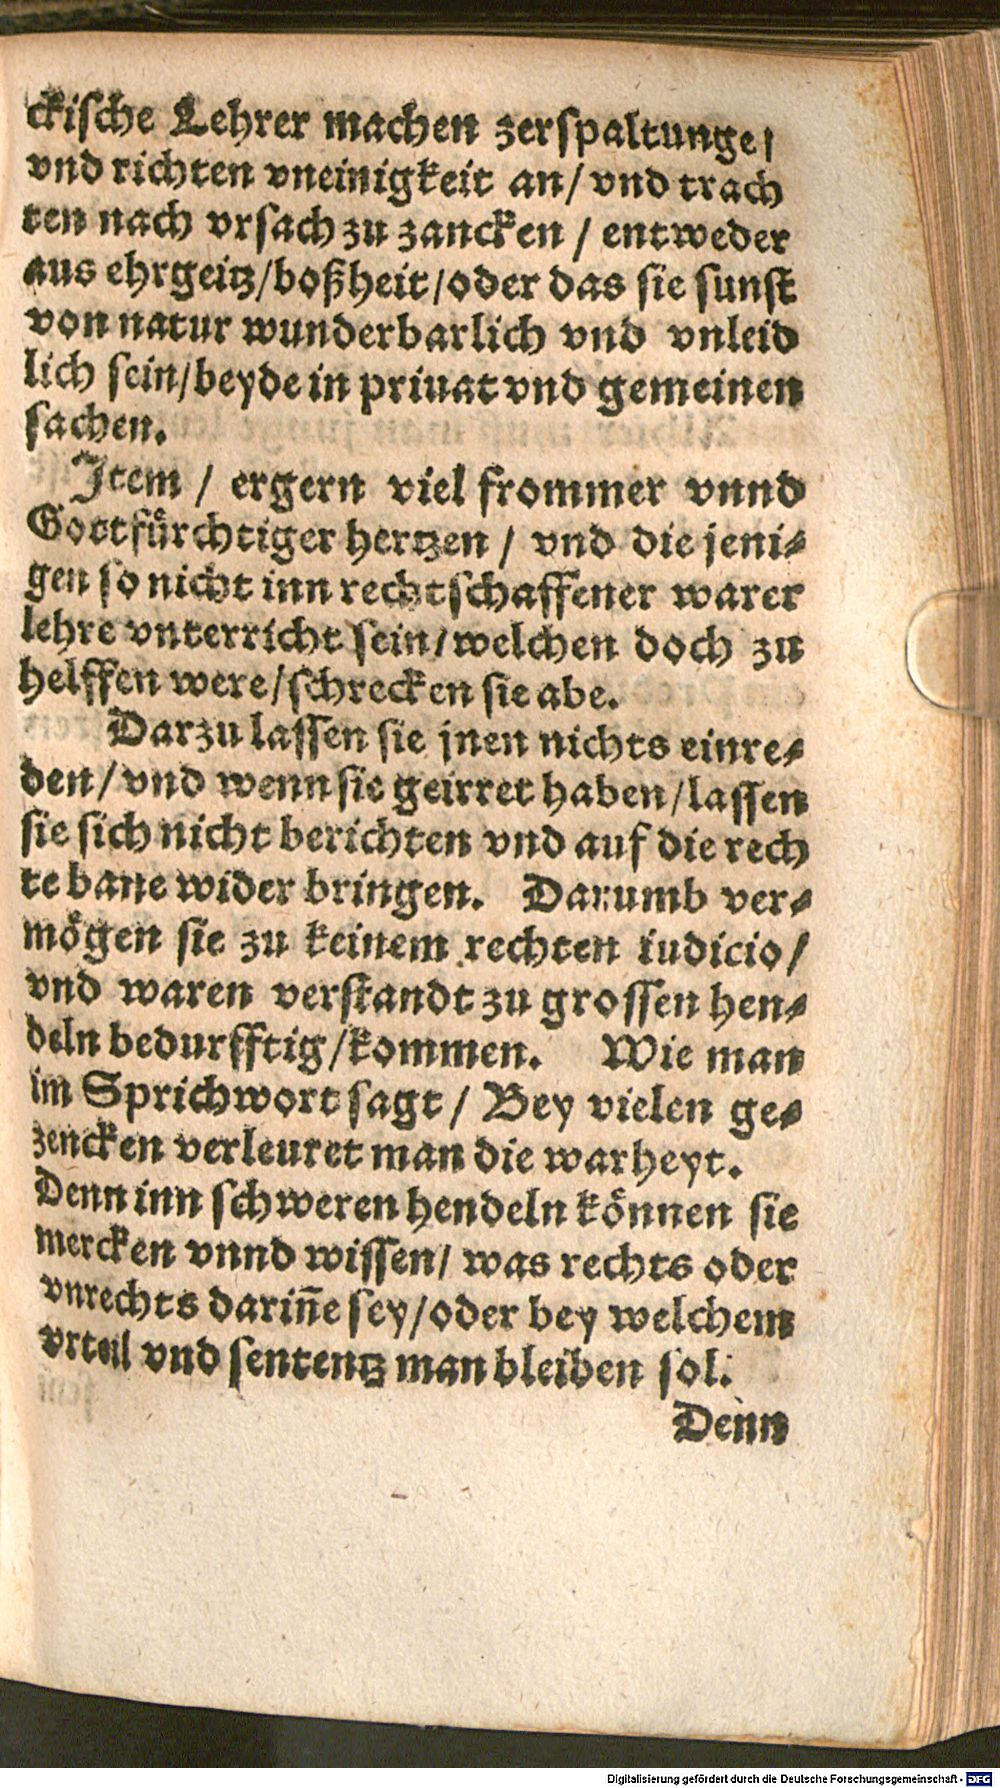 ckische Lehrer machen zerspaltunge/
vnd richten vneinigkeit an/ vnd trach
ten nach vrsach zu zancken / entweder
aus ehrgeitz/boßheit/oder das sie sunst
von natur wunderbarlich vnd vnleid
lich sein/beyde in priuat vnd gemeinen
sachen.
Item / ergern viel frommer vnnd
Gottfürchtiger hertzen / vnd die jeni-
gen so nicht inn rechtschaffener warer
lehre vnterricht sein/welchen doch zu
helffen were/schrecken sie abe.
Darzu lassen sie jnen nichts einre-
den/ vnd wenn sie geirret haben/lassen
sie sich nicht berichten vnd auf die rech
te bane wider bringen. Darumb ver-
mögen sie zu keinem rechten iudicio/
vnd waren verstandt zu grossen hen-
deln bedurfftig/kommen. Wie man
im Sprichwort sagt / Bey vielen ge-
zencken verleuret man die warheyt.
Denn inn schweren hendeln können sie
mercken vnnd wissen/ was rechts oder
vnrechts darin̄e sey/oder bey welchem
vrteil vnd sententz man bleiben sol.
Denn
Digitalisierung gefördert durch die Deutsche Forschungsgemeinschaft - DFG